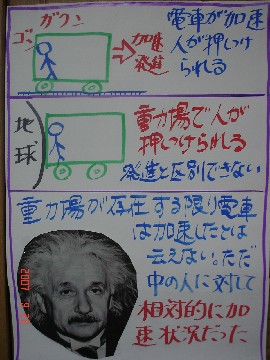 ガクン
ゴン
加速
発進
電車が加速
人が押しつけ
られれる
地球
重力場で人が
押しつけられれる
発進と区別できない
重力場が存在する限り電車
は加速したとは
云えない。ただ
中の人に対して
相対的に加
速状況だった